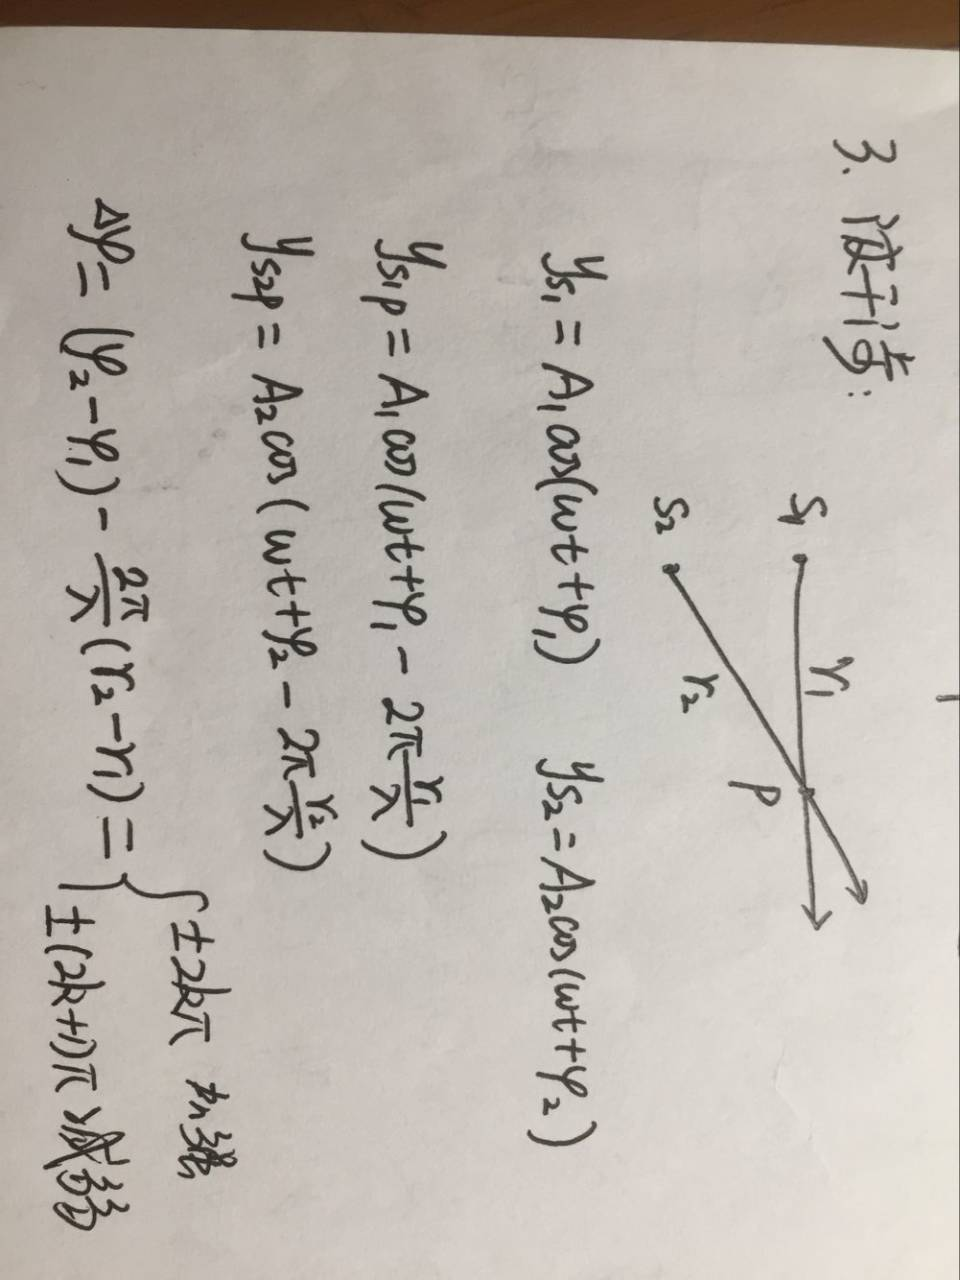 3. 波干涉:
S₁ r₁
S₂ r₂ P
y_{s₁} = A₁cos(ωt+φ₁) y_{s₂} = A₂cos(ωt+φ₂)
y_{s₁p} = A₁cos(ωt+φ₁ - 2π\frac{r₁}{λ})
y_{s₂p} = A₂cos(ωt+φ₂ - 2π\frac{r₂}{λ})
Δφ = (φ₂-φ₁) - \frac{2π}{λ}(r₂-r₁) = { ±2kπ 加强
±(2k+1)π 减弱